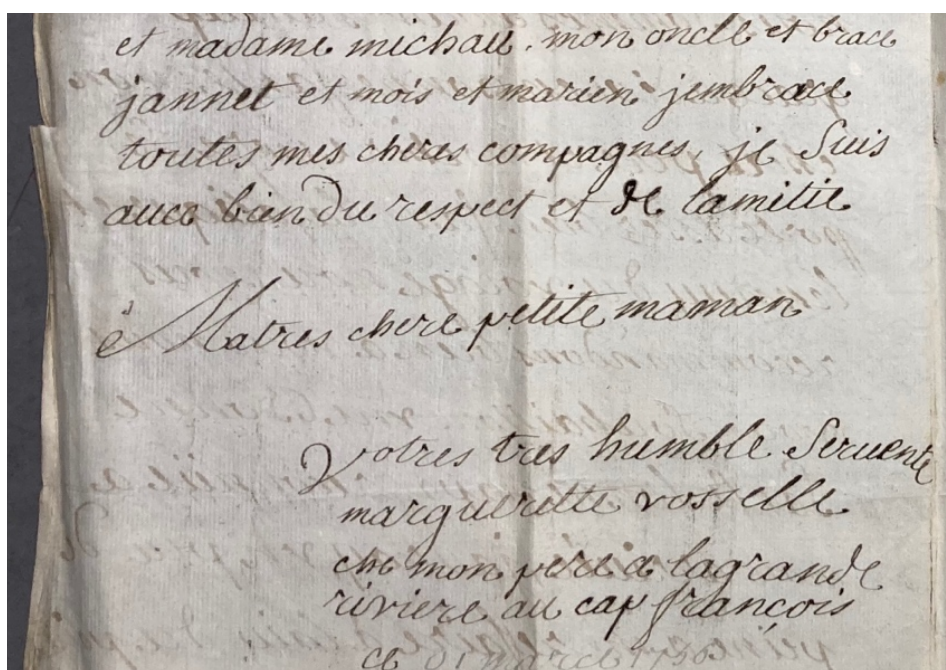 et madame michau. mon oncle et brace
jannet et mois et marien jembrace
toutes mes cheres compagnes, je suis
auce bien du respect et de lamitie
Matres chere petite maman
votres tres humble seruente
marguerette vosselle
che mon pere a lagrande
riviere au cap françois
ce